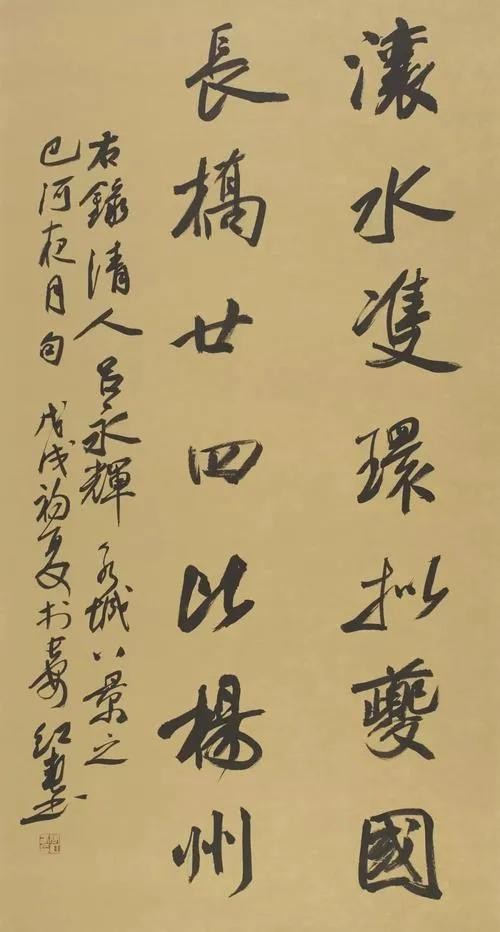 瀼水雙環拟夔國
長橋廿四比楊州
右錄清人呂永輝永城八景之
巴河夜月句 戊戌初夏於